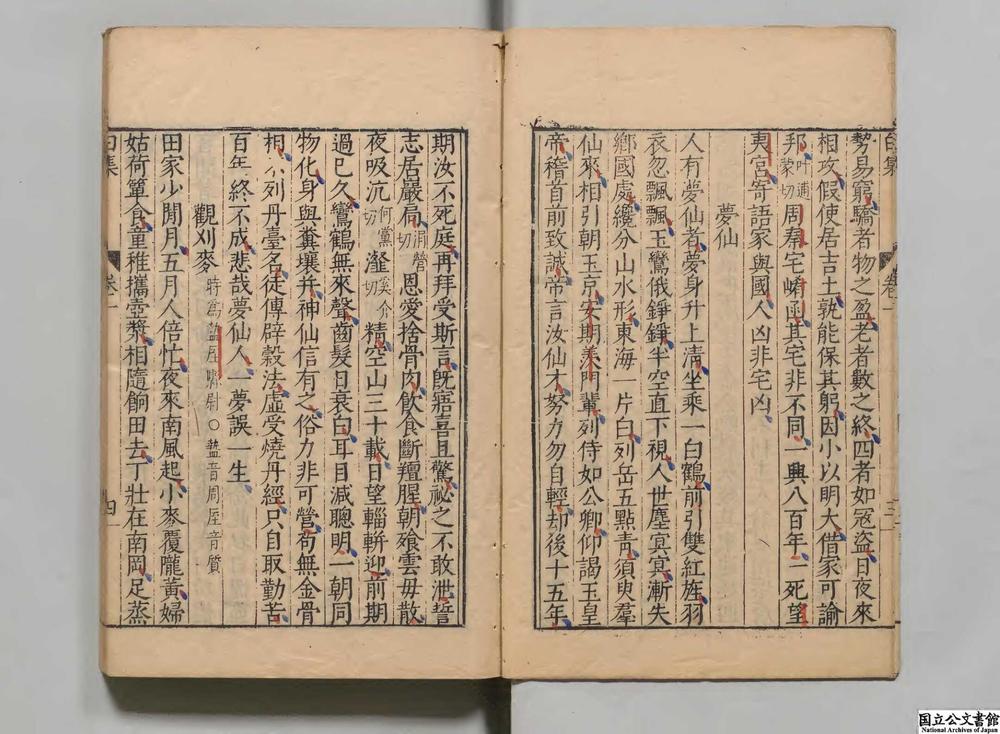 勢易窮驕者物之盈老者數之終四者如冦盜日夜來
相攻假使居吉土孰能保其躬因小以明大借家可諭
邦叶通蒙切周秦宅崤函其宅非不同一興八百年一死望
夷宮寄語家與國人凶非宅凶
夢仙
人有夢仙者夢身升上清坐乘一白鶴前引雙紅旌羽
衣忽飄飄玉鸞俄錚錚半空直下視人世塵冥冥漸失
鄉國處纔分山水形東海一片白列岳五點青須臾羣
仙來相引朝玉京安期羨門輩列侍如公卿仰謁玉皇
帝稽首前致誠帝言汝仙才努力勿自輕却後十五年
期汝不死庭再拜受斯言旣寤喜且驚祕之不敢泄誓
志居嚴扃涓營切恩愛捨骨肉飲食斷羶腥朝飱雲毋散
夜吸沆何黨切瀣奚介切精空山三十載日望輜軿迎前期
過已久鸞鶴無來聲齒髮日衰白耳目減聰明一朝同
物化身與糞壤并神仙信有之俗力非可營苟無金骨
相不列丹臺名徒傳辟穀法虛受燒丹經只自取勤苦
百年終不成悲哉夢仙人一夢誤一生
觀刈麥時爲盩厔縣尉○盩音周厔音質
田家少閒月五月人倍忙夜來南風起小麥覆隴黃婦
姑荷簞食童稚攜壺漿相隨餉田去丁壯在南岡足蒸
白集
卷一
四
国立公文書館
National Archives of Japan